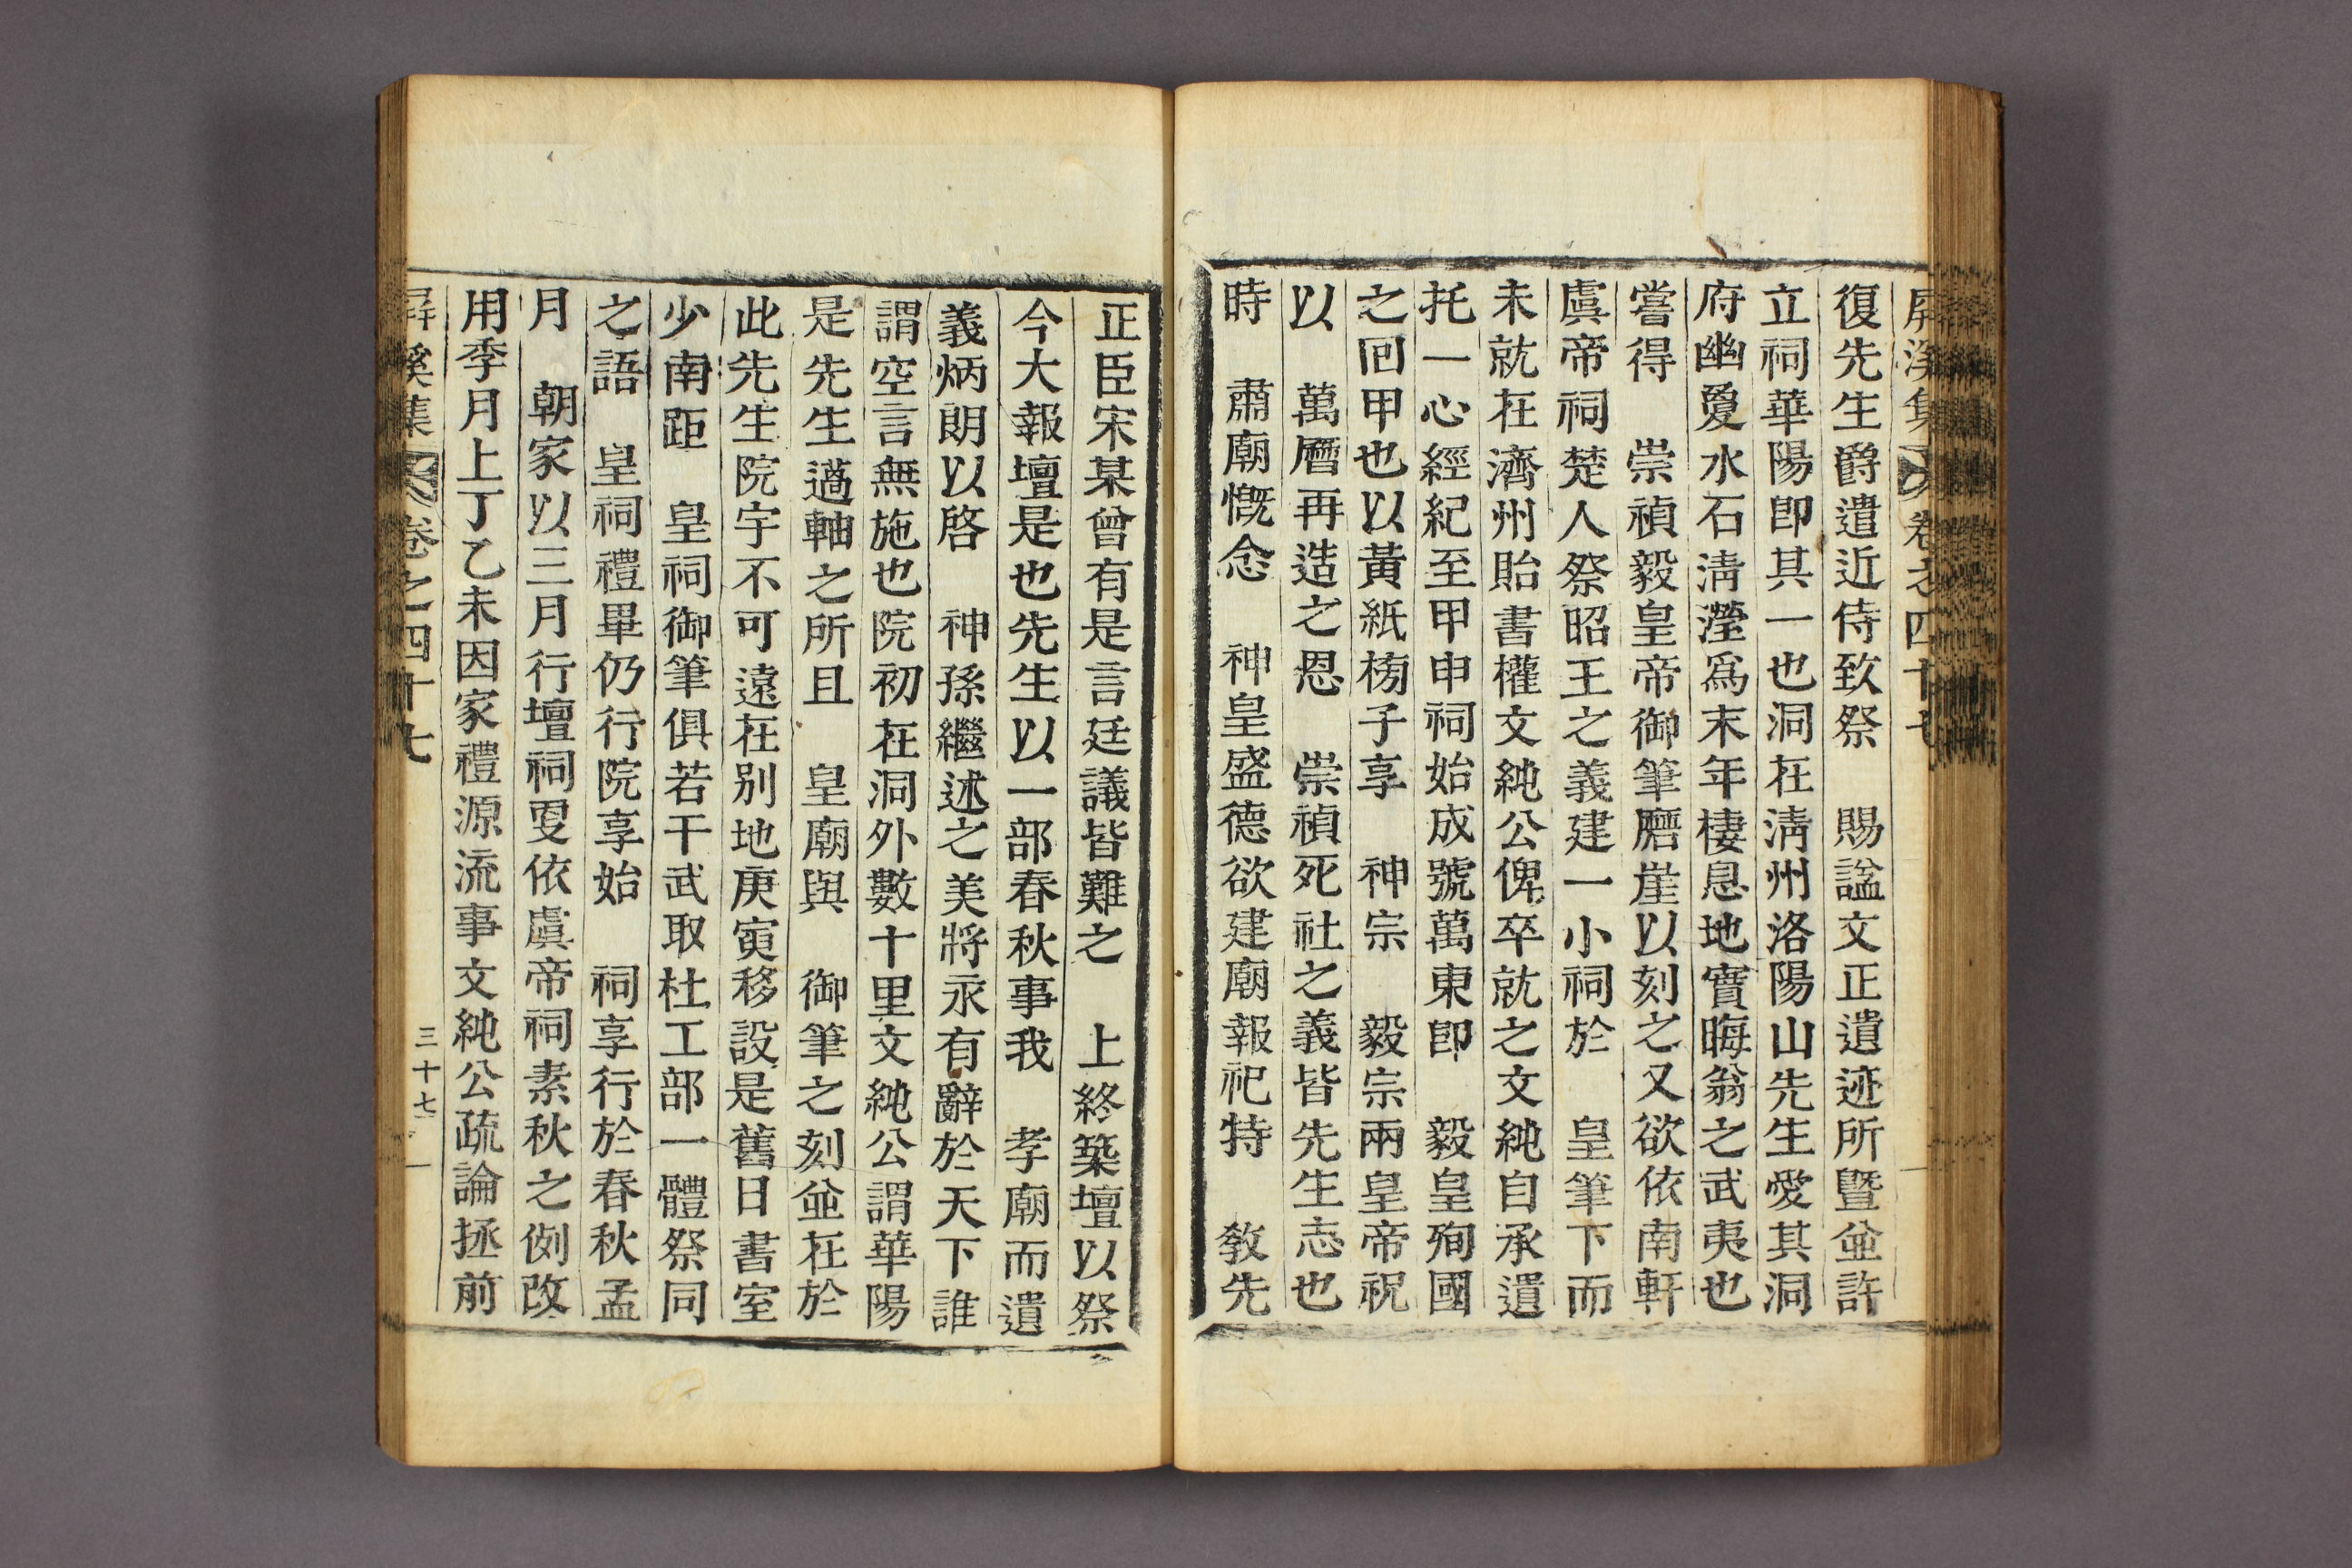 屛溪集 卷之四十七
復先生爵遣近侍致祭 賜諡文正遺迹所曁並許
立祠華陽卽其一也洞在淸州洛陽山先生愛其洞
府幽敻水石淸瀅爲末年棲息地實晦翁之武夷也
嘗得 崇禎毅皇帝御筆磨崖以刻之又欲依南軒
虞帝祠楚人祭昭王之義建一小祠於 皇筆下而
未就在濟州貽書權文純公俾卒就之文純自承遺
托一心經紀至甲申祠始成號萬東卽 毅皇殉國
之回甲也以黃紙榜子享 神宗 毅宗兩皇帝祝
以 萬曆再造之恩 崇禎死社之義皆先生志也
時 肅廟慨念 神皇盛德欲建廟報祀特 敎先
正臣宋某曾有是言廷議皆難之 上終築壇以祭
今大報壇是也先生以一部春秋事我 孝廟而遺
義炳朗以啓 神孫繼述之美將永有辭於天下誰
謂空言無施也院初在洞外數十里文純公謂華陽
是先生薖軸之所且 皇廟與 御筆之刻並在於
此先生院宇不可遠在别地庚寅移設是舊日書室
少南距 皇祠御筆俱若干武取杜工部一體祭同
之語 皇祠禮畢仍行院享始 祠享行於春秋孟
月 朝家以三月行壇祠叓依虞帝祠素秋之例改
用季月上丁乙未因家禮源流事文純公疏論拯前
屛溪集 卷之四十七 三十七